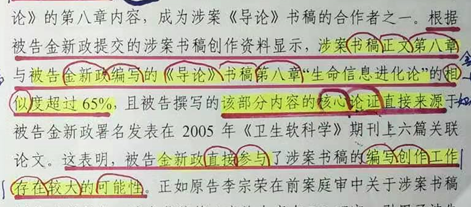 论》的第八章内容，成为涉案《导论》书稿的合作者之一。根据
被告金新政提交的涉案书稿创作资料显示，涉案书稿正文第八章
与被告金新政编写的《导论》书稿第八章“生命信息进化论”的相
似度超过 65%，且被告撰写的该部分内容的核心论证直接来源于
被告金新政署名发表在 2005 年《卫生软科学》期刊上六篇关联
论文。这表明，被告金新政直接参与了涉案书稿的编写创作工作
存在较大的可能性。正如原告李宗荣在前案庭审中关于涉案书稿